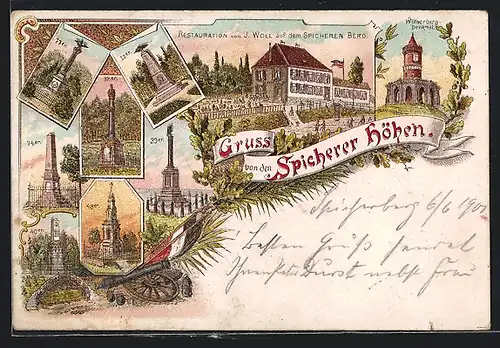 Restauration von J. Woll auf dem Spicheren Berg.
Winterberg-
Denkmal.
77er.
39er.
74er.
Gruss
von den
Spicherer Höhen.
Spicherberg 6/6 1901
Besten Gruß sendet
Durst nebst Frau